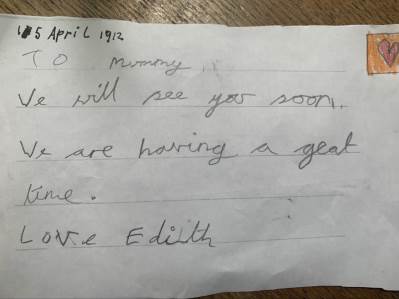 15 April 1912
To mummy
We will see you soon.
We are having a geat
time.
Love Edith